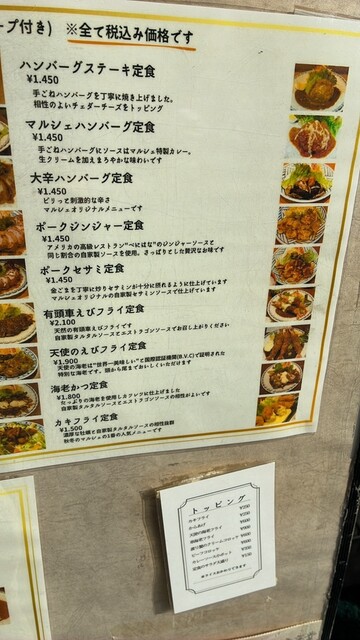 ープ付き) ※全て税込み価格です
ハンバーグステーキ定食
¥1.450
手ごねハンバーグを丁寧に焼き上げました。
相性のよいチェダーチーズをトッピング
マルシェハンバーグ定食
¥1.450
手ごねハンバーグにソースはマルシェ特製カレー。
生クリームを加えまろやかな味わいです
大辛ハンバーグ定食
¥1.450
ピリッと刺激的な辛さ
マルシェオリジナルメニューです
ポークジンジャー定食
¥1.450
アメリカの高級レストラン"べにはな"のジンジャーソースと
同じ割合の自家製ソースを使用。さっぱりとした贅沢なお味です
ポークセサミ定食
¥1.450
金ごまを丁寧に炒りセサミンが十分に摂れるように仕上げています
マルシェオリジナルの自家製セサミンソースで仕上げています
有頭車えびフライ定食
¥2.100
天然の有頭車えびフライです
自家製タルタルソースとエストラゴンソースでお召し上がりください
天使のえびフライ定食
¥1.900
天使の海老は"世界一美味しい"と国際認証機関(B.V.C)で証明された
特別な海老です。頭から尾までおいしくいただけます
海老かつ定食
¥1.800
たっぷりの海老を使用したフレフに仕上げました
自家製タルタルソースとエストラゴンソースの相性がよいです
カキフライ定食
¥1.500
濃厚な牡蠣と自家製タルタルソースの相性抜群
秋冬のマルシェの1番の人気メニューです
トッピング
カキフライ
からあげ